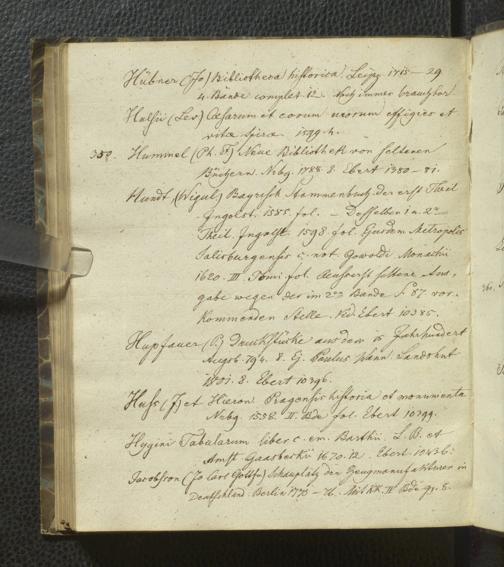 Hübner (Jo) Bibliotheca historica. Leipz. 1715 – 29
4 Bände complet 12. Noch immer brauchbar.
Hulsii (Lev) Caesarum et eorum uxorum effigies et
vitae Spirae. 1599. 4.
352. Hummel (Ph. F.) Neue Bibliothek von seltenen
Büchern. Nrbg. 8. Ebert 10380 – 81.
Hundt (Wigul) Bayrisch Stammenbuch. Der erst Theil
Ingolst. 1585. fol. – Desselben 1 u. 2r
Theil. Ingolst. 1598. fol. Ejusdem Metropolis
Salisburgensis c. not. Gewoldi. Monachii
1620. III Tomi. fol. Aeusserst seltene Aus,
gabe wegen der im 2ten Bande S. 87. vor,
kommenden Stelle. Vid. Ebert 10385.
Hupfauer (P.) Druckstücke aus dem 15 Jahrhundert
Augsb. 794. 8. Ej. Paulus Wann. Landshut
1801. 8. Ebert 10396.
Huss (J) et Hieron Pragensis historia et monumenta
Nrbg. 1558. II Bde. fol. Ebert
Hygini Fabularum liber c. em. Barthii. L. B. et
Amst. Gaasbekii 1670. 12. Ebert 10436.
Jacobsson (Jo Carl Gottfr) Schauplatz der Zeugmanufakturen in
Deutschland. Berlin 1773 – 76. Mit KK. IV Bde gr. 8.